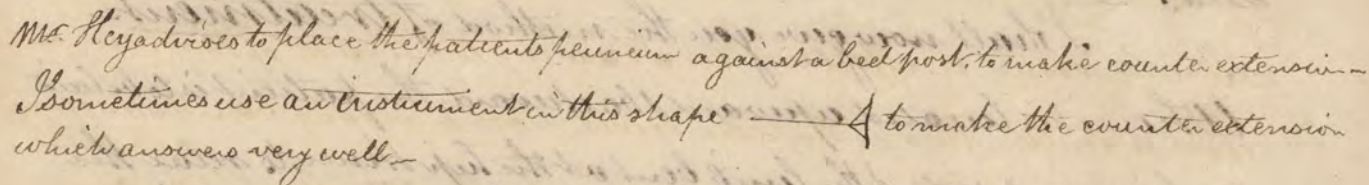 Mr. Hey advises to place the patients perineum against a bed post, to make counter extension—
I sometimes use an instrument in this shape to make the counter extension
which answers very well—